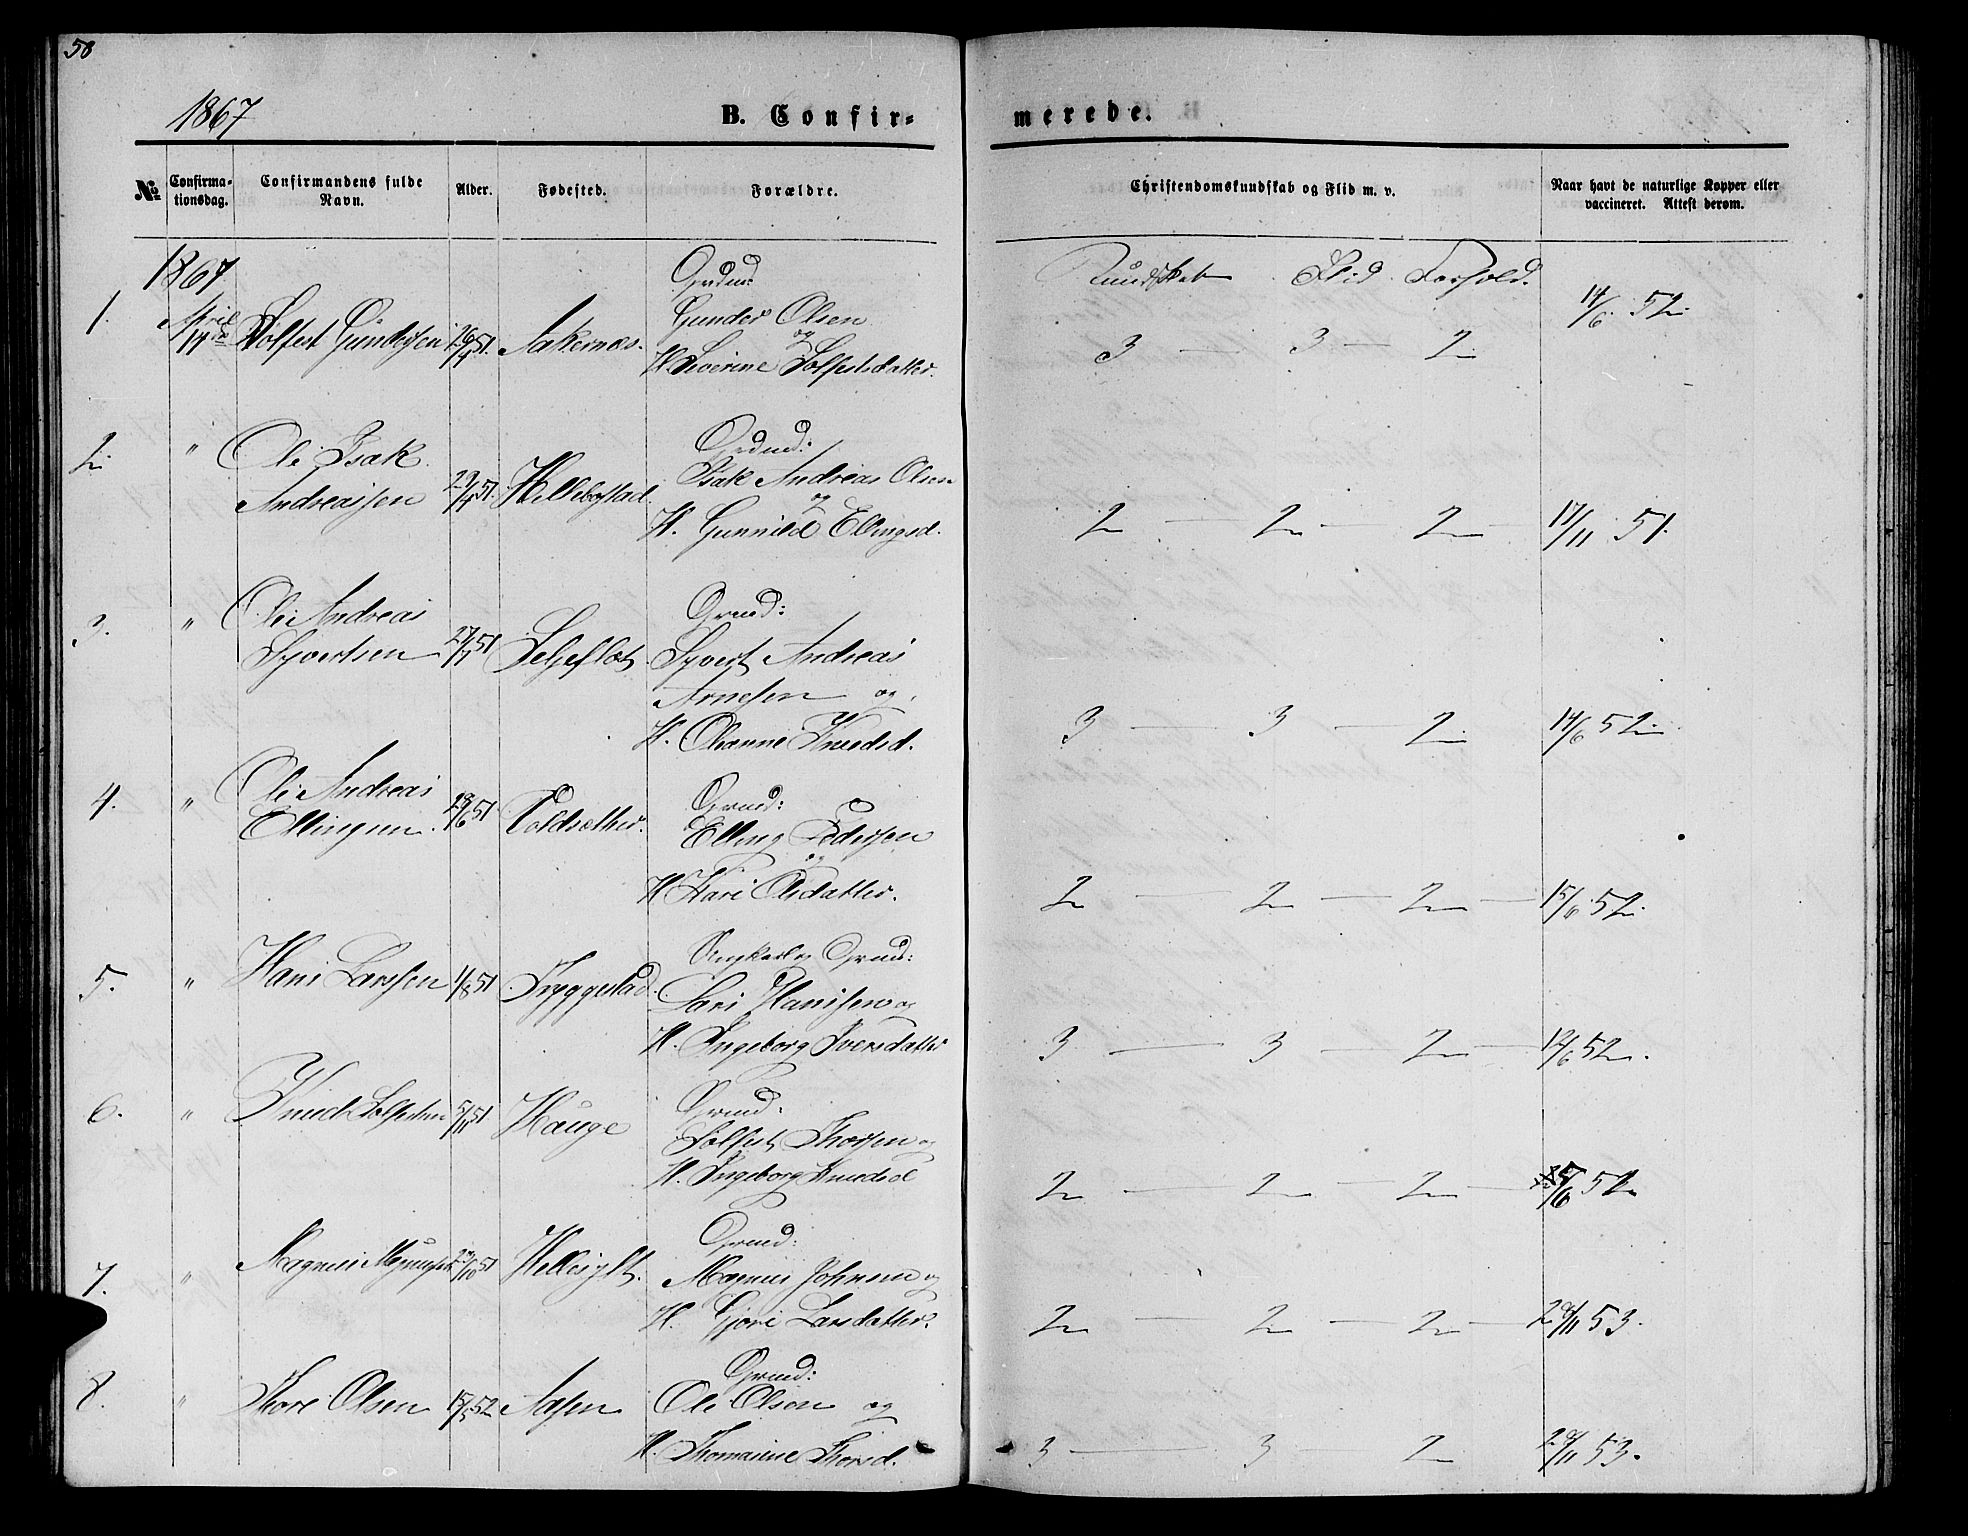 58
1867
B. Confir-
merede.
No
Confirma-
tionsdag.
Confirmandens fulde
Navn.
Alder.
Fødested.
Forældre.
Christendomskundskab og Flid m. v.
Naar havt de naturlige Kopper eller
vaccineret. Attest derom.
1867
Kundskab Flid Forhold.
Grdm:
1. April 26/4 51. Gunder Olsen
og
H. Severine Solfestsdatter.
3 — 3 — 2 14/6 52.
2. " Ole Isak
Andreassen 29/4 51. Hellebostad.
Grdmd:
Isak Andreas Olsen
og
H. Gunnild Ellingsd.
2 — 2 — 2 — 17/11 51.
3. " Ole Andreas
Syvertsen 27/7 51 Seljeflot.
Grmd:
Syvert Andreas
Arnesen og
H. Olianne Knudsd.
3 — 3 — 2 14/6 52.
4. " Ole Andreas
Ellingsen. 29/6 51 Voldsæther.
Grmd:
Elling Pedersen
og
H. Kari Olsdatter.
2 — 2 — 2 — 15/6 52.
5. " Hans Larssen 1/8 51 Tryggestad.
Ungkarl og Grmd:
Lars Hanssen og
H. Ingeborg Iversdatter
3 — 3 — 2 — 12/6 52.
6. " Knud Solfestsen 5/11 51 Hauge
Grmd:
Solfest Thorsen og
H. Ingeborg Knudsd
2 — 2 — 2 — /6 52
7. " Magnus 51 Hellesylt.
Grmd:
Magnus Johnsen og
H. Gjøri Larsdatter.
2 — 2 — 2 — 29/11 53.
8. " Thore Olsen 15/5 52 Aasen
Grmd:
Ole Olsen og
H. Thomasine Thorsd.
3 — 3 2 29/11 53.